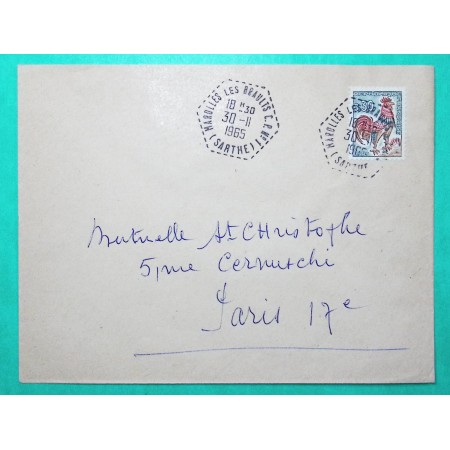 MAROLLES LES BRAULTS C.P. Nº1
18 H30
30-11
1965
(SARTHE)
MAROLLES LES BRA
1
30
1965
(SARTHE
Mutuelle St CHristophe
5, rue Cernuschi
Paris 17e